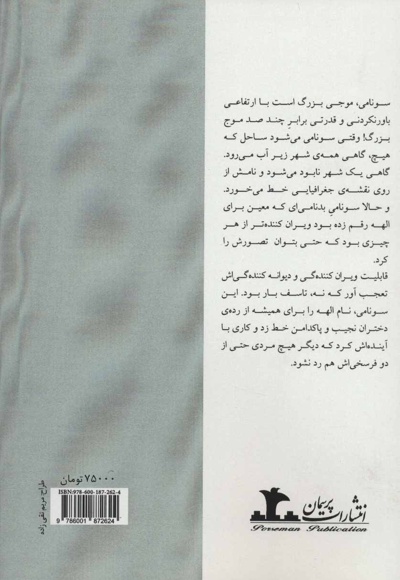 سونامی، موجی بزرگ است با ارتفاعی
باورنکردنی و قدرتی برابرِ چند صد موج
بزرگ! وقتی سونامی می‌شود ساحل که
هیچ، گاهی همه‌ی شهر زیر آب می‌رود.
گاهی یک شهر نابود می‌شود و نامش از
روی نقشه‌ی جغرافیایی خط می‌خورد.
و حالا سونامیِ بدنامی‌ای که معین برای
الهه رقم زده بود ویران کننده‌تر از هر
چیزی بود که حتی بتوان تصورش را
کرد.
قابلیت ویران کننده‌گی و دیوانه کننده‌گی‌اش
تعجب آور که نه، تاسف بار بود. این
سونامی، نام الهه را برای همیشه از رده‌ی
دختران نجیب و پاکدامن خط زد و کاری با
آینده‌اش کرد که دیگر هیچ مردی حتی از
دو فرسخی‌اش هم رد نشود.
۷۵۰۰۰ تومان
ISBN:978-600-187-262-4
9 786001 872624
طراح: مریم تقی زاده
انتشارات پرسمان
Porseman Publication